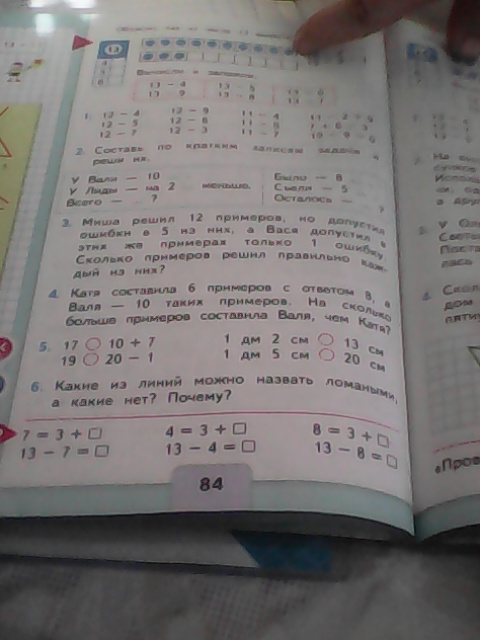 13
Вычисли и запомни.
13 − 4 13 − 5 13 − 6
13 − 9 13 − 8 13 − 7
1. 12 − 4 12 − 9 11 − 4
12 − 5 12 − 6 11 − 5
12 − 7 12 − 3 11 − 7
2. Составь по кратким записям задачи и
реши их.
У Вали — 10 Было — 8
У Лиды — на 2 меньше. Съели — 5
Всего — ? Осталось — ?
3. Миша решил 12 примеров, но допустил
ошибки в 5 из них, а Вася допустил в
этих же примерах только 1 ошибку.
Сколько примеров решил правильно каж-
дый из них?
4. Катя составила 6 примеров с ответом 8, а
Валя — 10 таких примеров. На сколько
больше примеров составила Валя, чем Катя?
5. 17 ○ 10 + 7 1 дм 2 см ○ 13 см
19 ○ 20 − 1 1 дм 5 см ○ 20 см
6. Какие из линий можно назвать ломаными,
а какие нет? Почему?
7 = 3 + □ 4 = 3 + □ 8 = 3 + □
13 − 7 = □ 13 − 4 = □ 13 − 8 = □
84